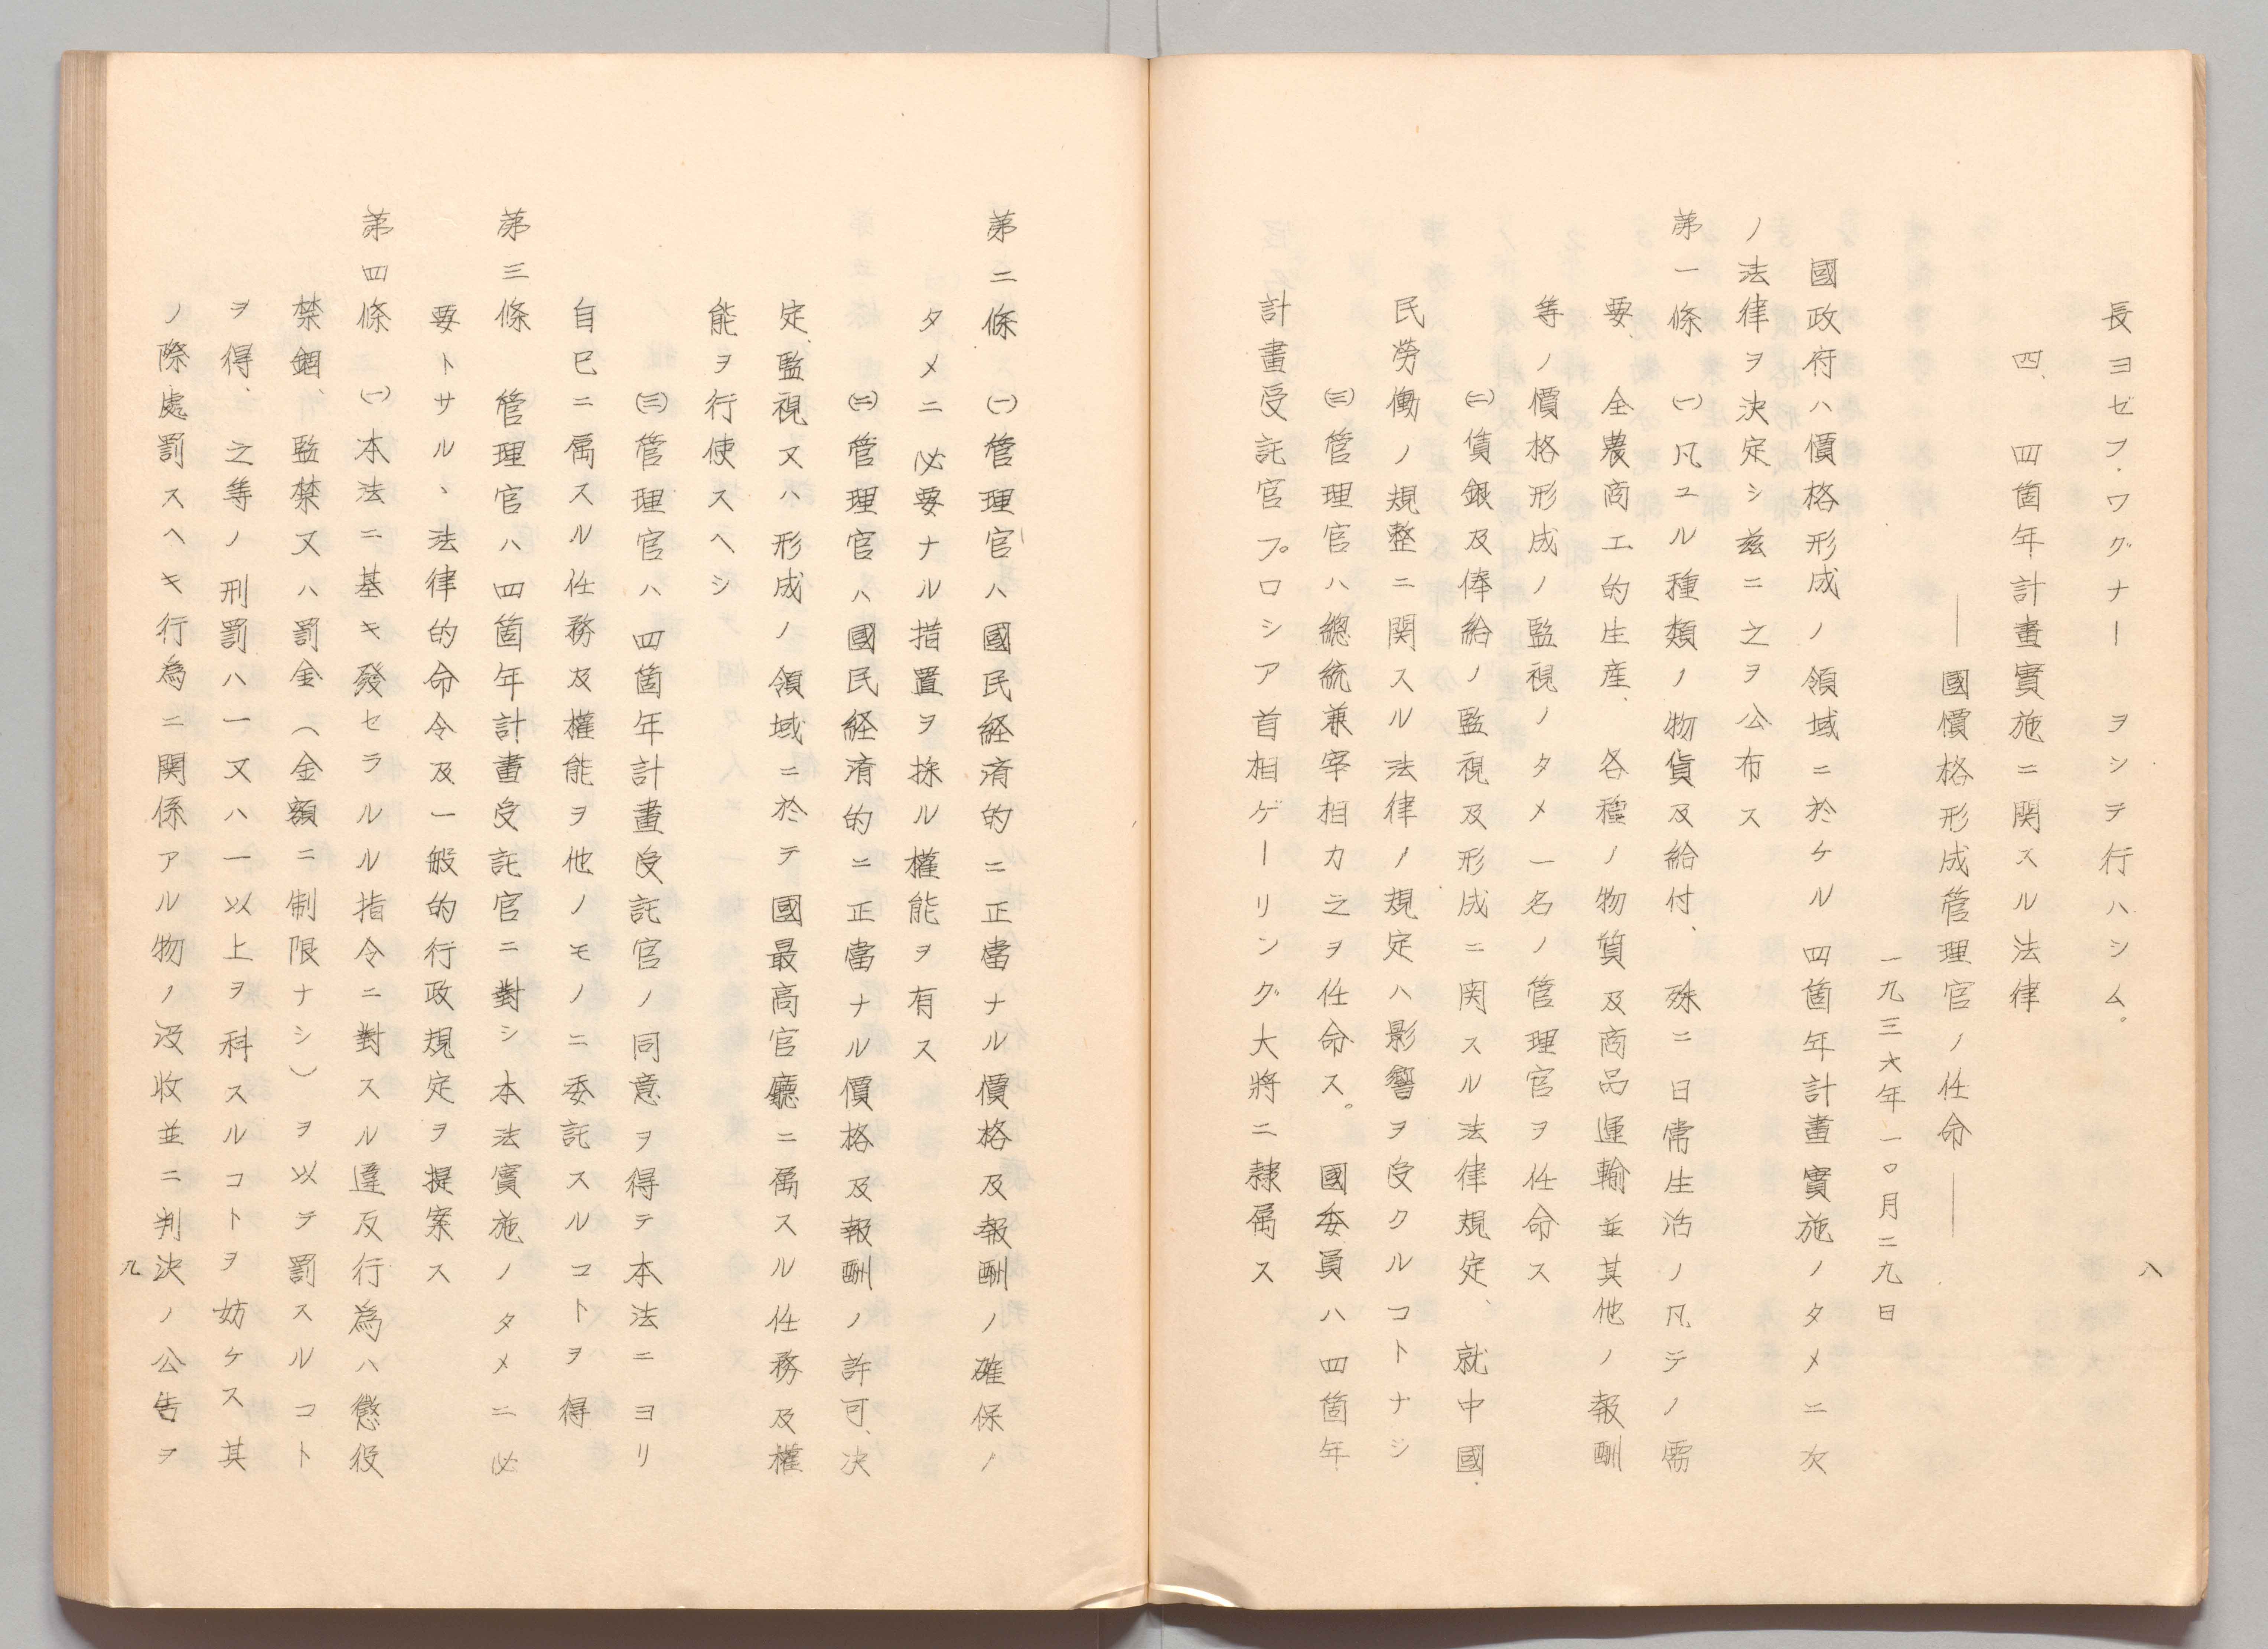 長ヨゼフ・ワグナーヲシテ行ハシム。
四、四箇年計畫實施ニ関スル法律
――國價格形成管理官ノ任命――
一九三六年一〇月二九日
國政府ハ價格形成ノ領域ニ於ケル四箇年計畫實施ノタメニ次
ノ法律ヲ決定シ茲ニ之ヲ公布ス
第一條 ㈠凡ユル種類ノ物貨及給付、殊ニ日常生活ノ凡テノ需
要、全農商工的生産、各種ノ物質及商品運輸並其他ノ報酬
等ノ價格形成ノ監視ノタメ一名ノ管理官ヲ任命ス
㈡賃銀及俸給ノ監視及形成ニ関スル法律規定、就中國
民勞働ノ規整ニ関スル法律ノ規定ハ影響ヲ受クルコトナシ
㈢管理官ハ總統兼宰相カ之ヲ任命ス。國委員ハ四箇年
計畫受託官プロシア首相ゲーリング大將ニ隷属ス
八
第二條 ㈠管理官ハ國民経済的ニ正當ナル價格及報酬ノ確保ノ
タメニ必要ナル措置ヲ採ル權能ヲ有ス
㈡管理官ハ國民経済的ニ正當ナル價格及報酬ノ許可、決
定、監視又ハ形成ノ領域ニ於テ國最高官廳ニ属スル任務及權
能ヲ行使スヘシ
㈢管理官ハ四箇年計畫受託官ノ同意ヲ得テ本法ニヨリ
自己ニ属スル任務及權能ヲ他ノモノニ委託スルコトヲ得
第三條 管理官ハ四箇年計畫受託官ニ對シ本法實施ノタメニ必
要トサルヽ法律的命令及一般的行政規定ヲ提案ス
第四條 ㈠本法ニ基キ發セラルル指令ニ對スル違反行為ハ懲役
禁錮、監禁又ハ罰金（金額ニ制限ナシ）ヲ以テ罰スルコト
ヲ得、之等ノ刑罰ハ一又ハ一以上ヲ科スルコトヲ妨ケス其
ノ際處罰スヘキ行為ニ関係アル物ノ沒收並ニ判決ノ公告ヲ
九